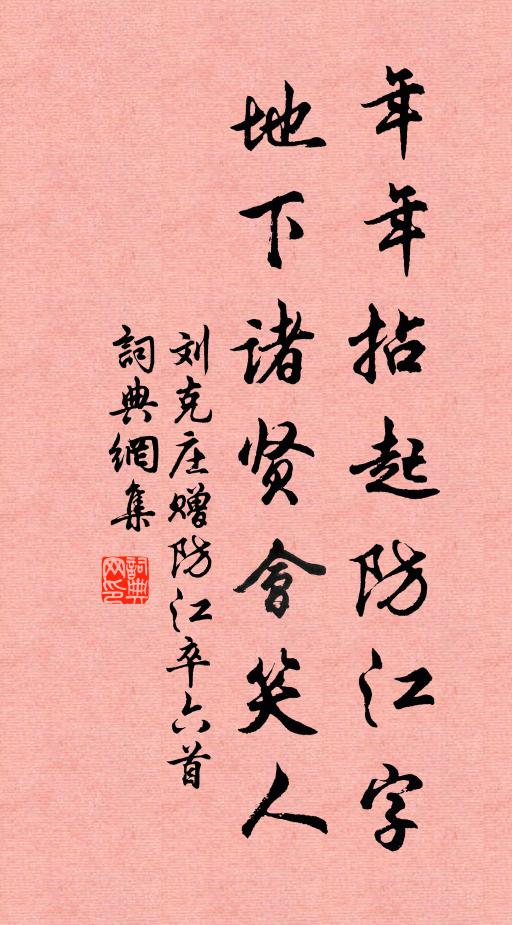 年年拈起防江字
地下诸贤會笑人
刘克庄赠防江卒六首
詞典網集
詞典网印